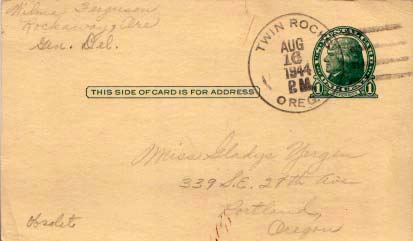 Wilma Ferguson
Rockaway, Ore
Gen. Del.
TWIN ROCKS
AUG
16
1944
P.M.
OREG.
1 1
THIS SIDE OF CARD IS FOR ADDRESS
Miss Gladys Yergen
339 S.E. 29th Ave
Portland,
Oregon
Obsolete